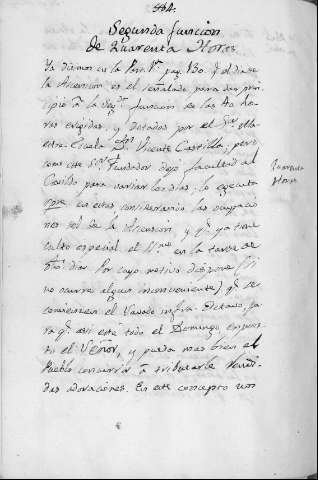 334.
Segunda funcion
de Quarenta Horas
Ya dixmos en la Part. 1ª pag. 130. q.e el dia de
la Ascension es el señalado para dar prin-
cipio a la seg.da funcion de las 40. ho-
ras erigidas, y dotadas por el S.or Ma-
estre Escuela D.n Vicente Castilla; pero
como este S.or Fundador dejó facultad al
Cavildo para variar los dias, lo egecuta
en estos considerando las ocupacio-
nes de la Ascension, y q.e ya tiene
culto especial el en la tarde de
dia. Por cuyo motivo dispone (si
no ocurre algun inconveniente) q.e se
comiencen el Savado infra Octavo, pa-
ra q.e asi esté todo el Domingo expues-
to el Señor, y pueda mas bien el
Pueblo concurrir a tributarle rendi-
das adoraciones. En este concepto un
Quarenta
Horas